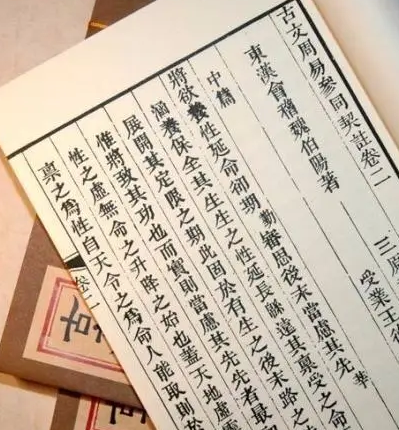 古文周易參同契註卷二
三原
東漢會稽魏伯陽著
受業王
中篇
將欲養性延命卻期 審思後末當慮其先
涵養保全其生生之性延長其稟受之命
展開其定限之期此固於有生之後末路之
惟將致其功也而實則當慮其先先者最
性之虛無命之升降之始也蓋天地虛
稟之爲性自天令之爲命人能取則於
卷二
古